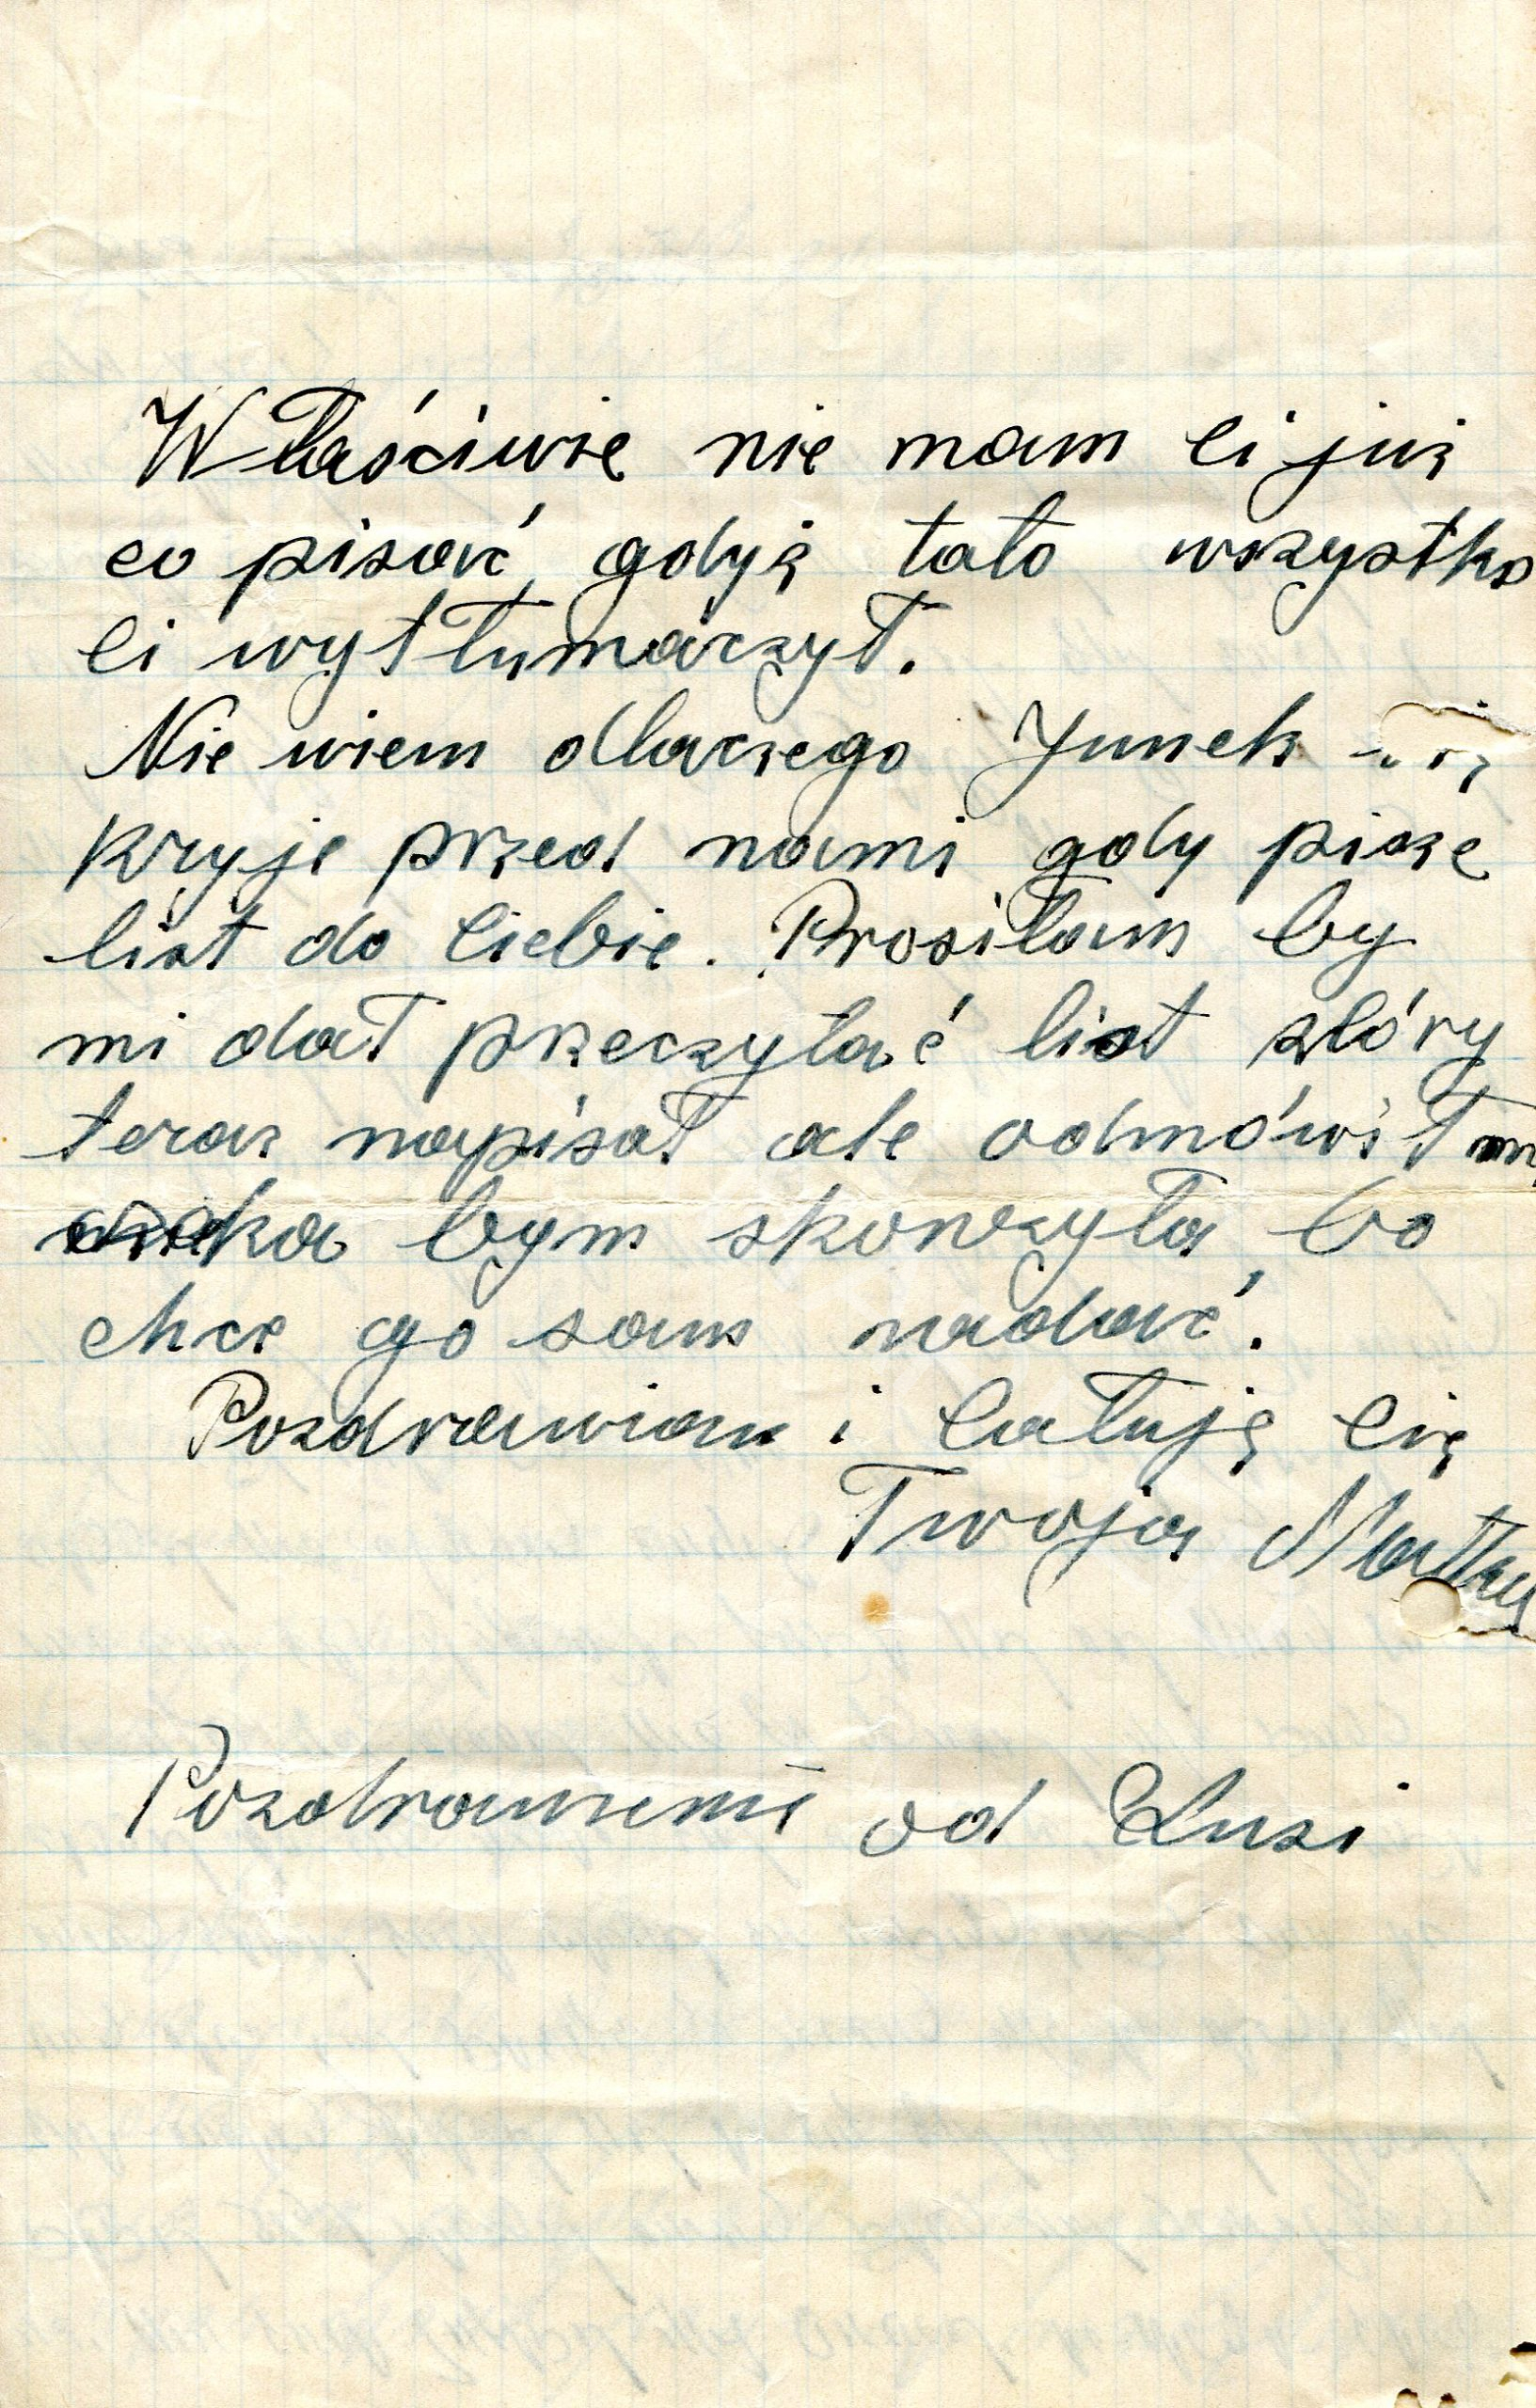 Właściwie nie mam Ci już
co pisać, gdyż tato wszystko
Ci wytłumaczył.
Nie wiem dlaczego Junek
kryje przed nami gdy pisze
list do Ciebie. Prosiłam by
mi dał przeczytać list
teraz napisał ale odmówił
czeka bym skonczyła, bo
chce go sam nadać.
Pozdrawiam i całuję Cię
Twoja
Pozdrowienie od Lusi